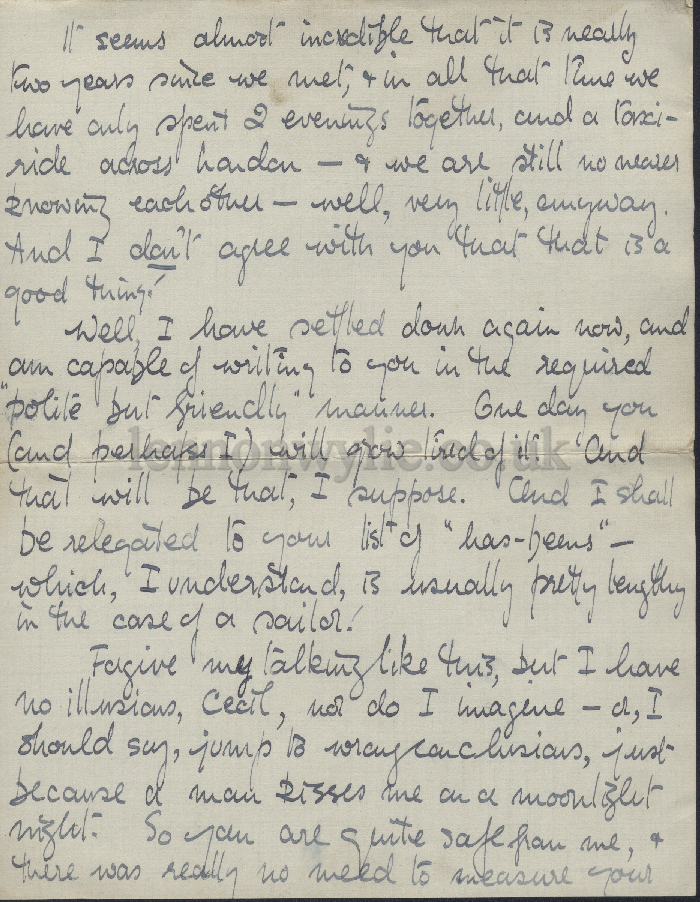 It seems almost incredible that it is nearly
two years since we met, & in all that time we
have only spent 2 evenings together, and a taxi-
ride across London — & we are still no nearer
knowing each other — well, very little, anyway.
And I don't agree with you that that is a
good thing!
Well, I have settled down again now, and
am capable of writing to you in the required
"polite but friendly" manner. One day you
(and perhaps I) will grow tired of it. And
that will be that, I suppose. And I shall
be relegated to your list of "has-beens" —
which, I understand, is usually pretty lengthy
in the case of a sailor!
Forgive my talking like this, but I have
no illusions, Cecil, nor do I imagine — or, I
should say, jump to wrong conclusions, just
because a man kisses me on a moonlight
night. So you are quite safe from me, &
there was really no need to measure your
lennonwylie.co.uk